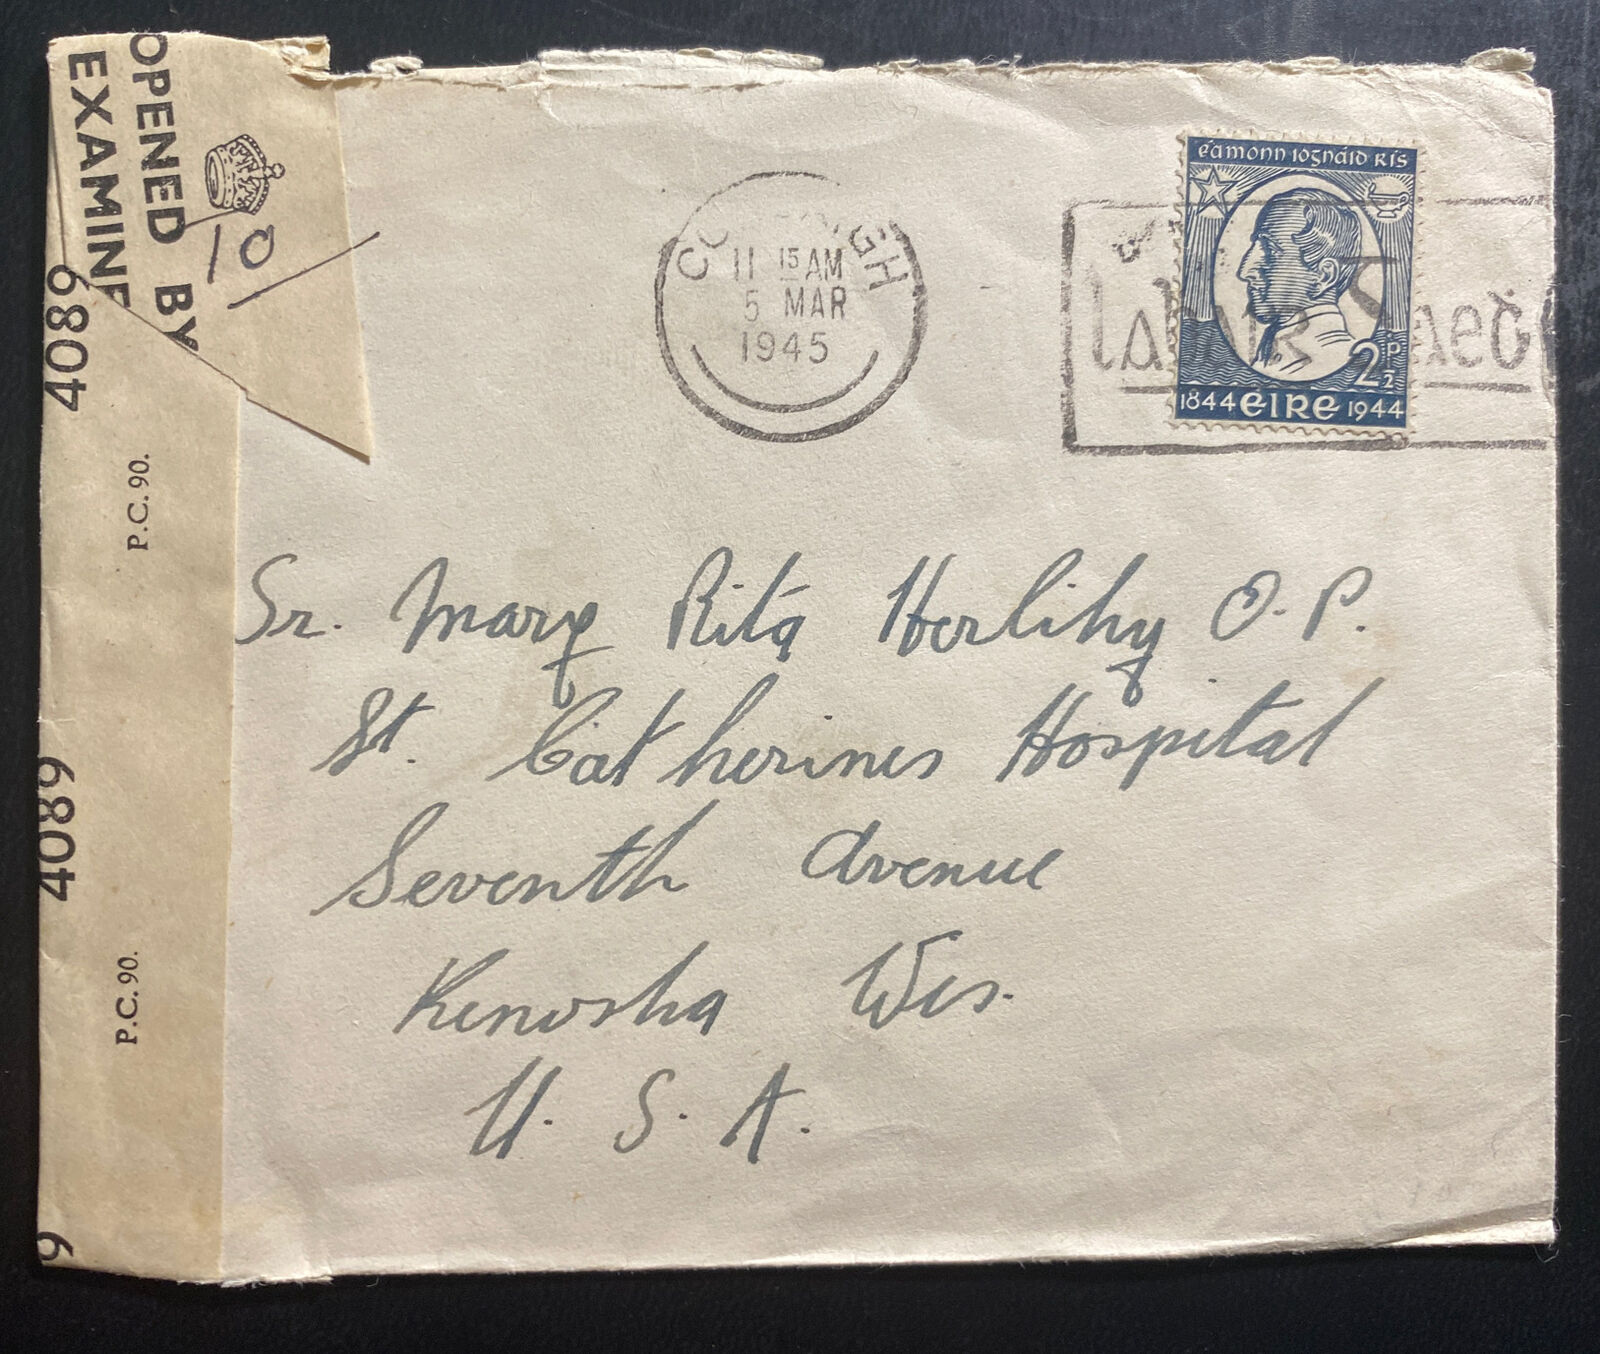 OPENED BY
EXAMINE
10
4089
P.C. 90.
4089
P.C. 90.
9
11 15 AM
5 MAR
1945
éamonn iognáid rís
2½p
1844 éire 1944
Sr. Mary Rita Herlihy O.P.
St. Catherines Hospital
Seventh Avenue
Kenosha Wis.
U. S. A.